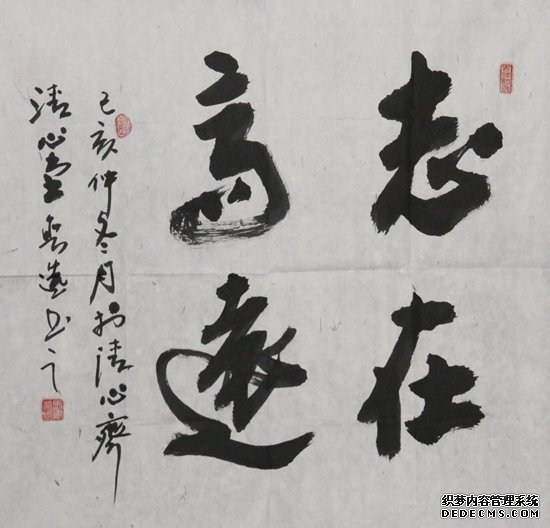 志在
高遠
己亥仲冬月於清心齋
清心堂
書之
织梦内容管理系统
DEDECMS.COM